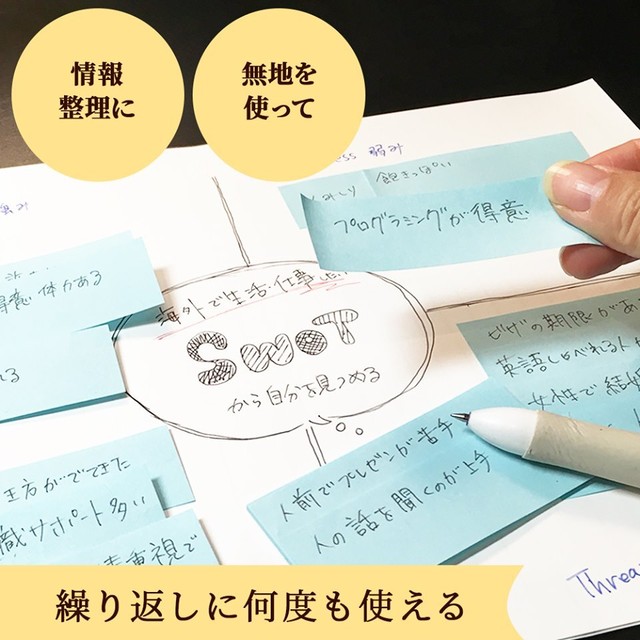 情報
整理に
無地を
使って
ess 弱み
飽きっぽい
プログラミングが得意
得意 体力ある
海外で生活・仕事
SWOT
から自分を見つめる
ビザの期限があ
英語しゃべれる人
女性で結婚
人前でプレゼンが苦手
人の話を聞くのが上手
生方がでてきた
職サポート多い
重視で
Threa
繰り返しに何度も使える